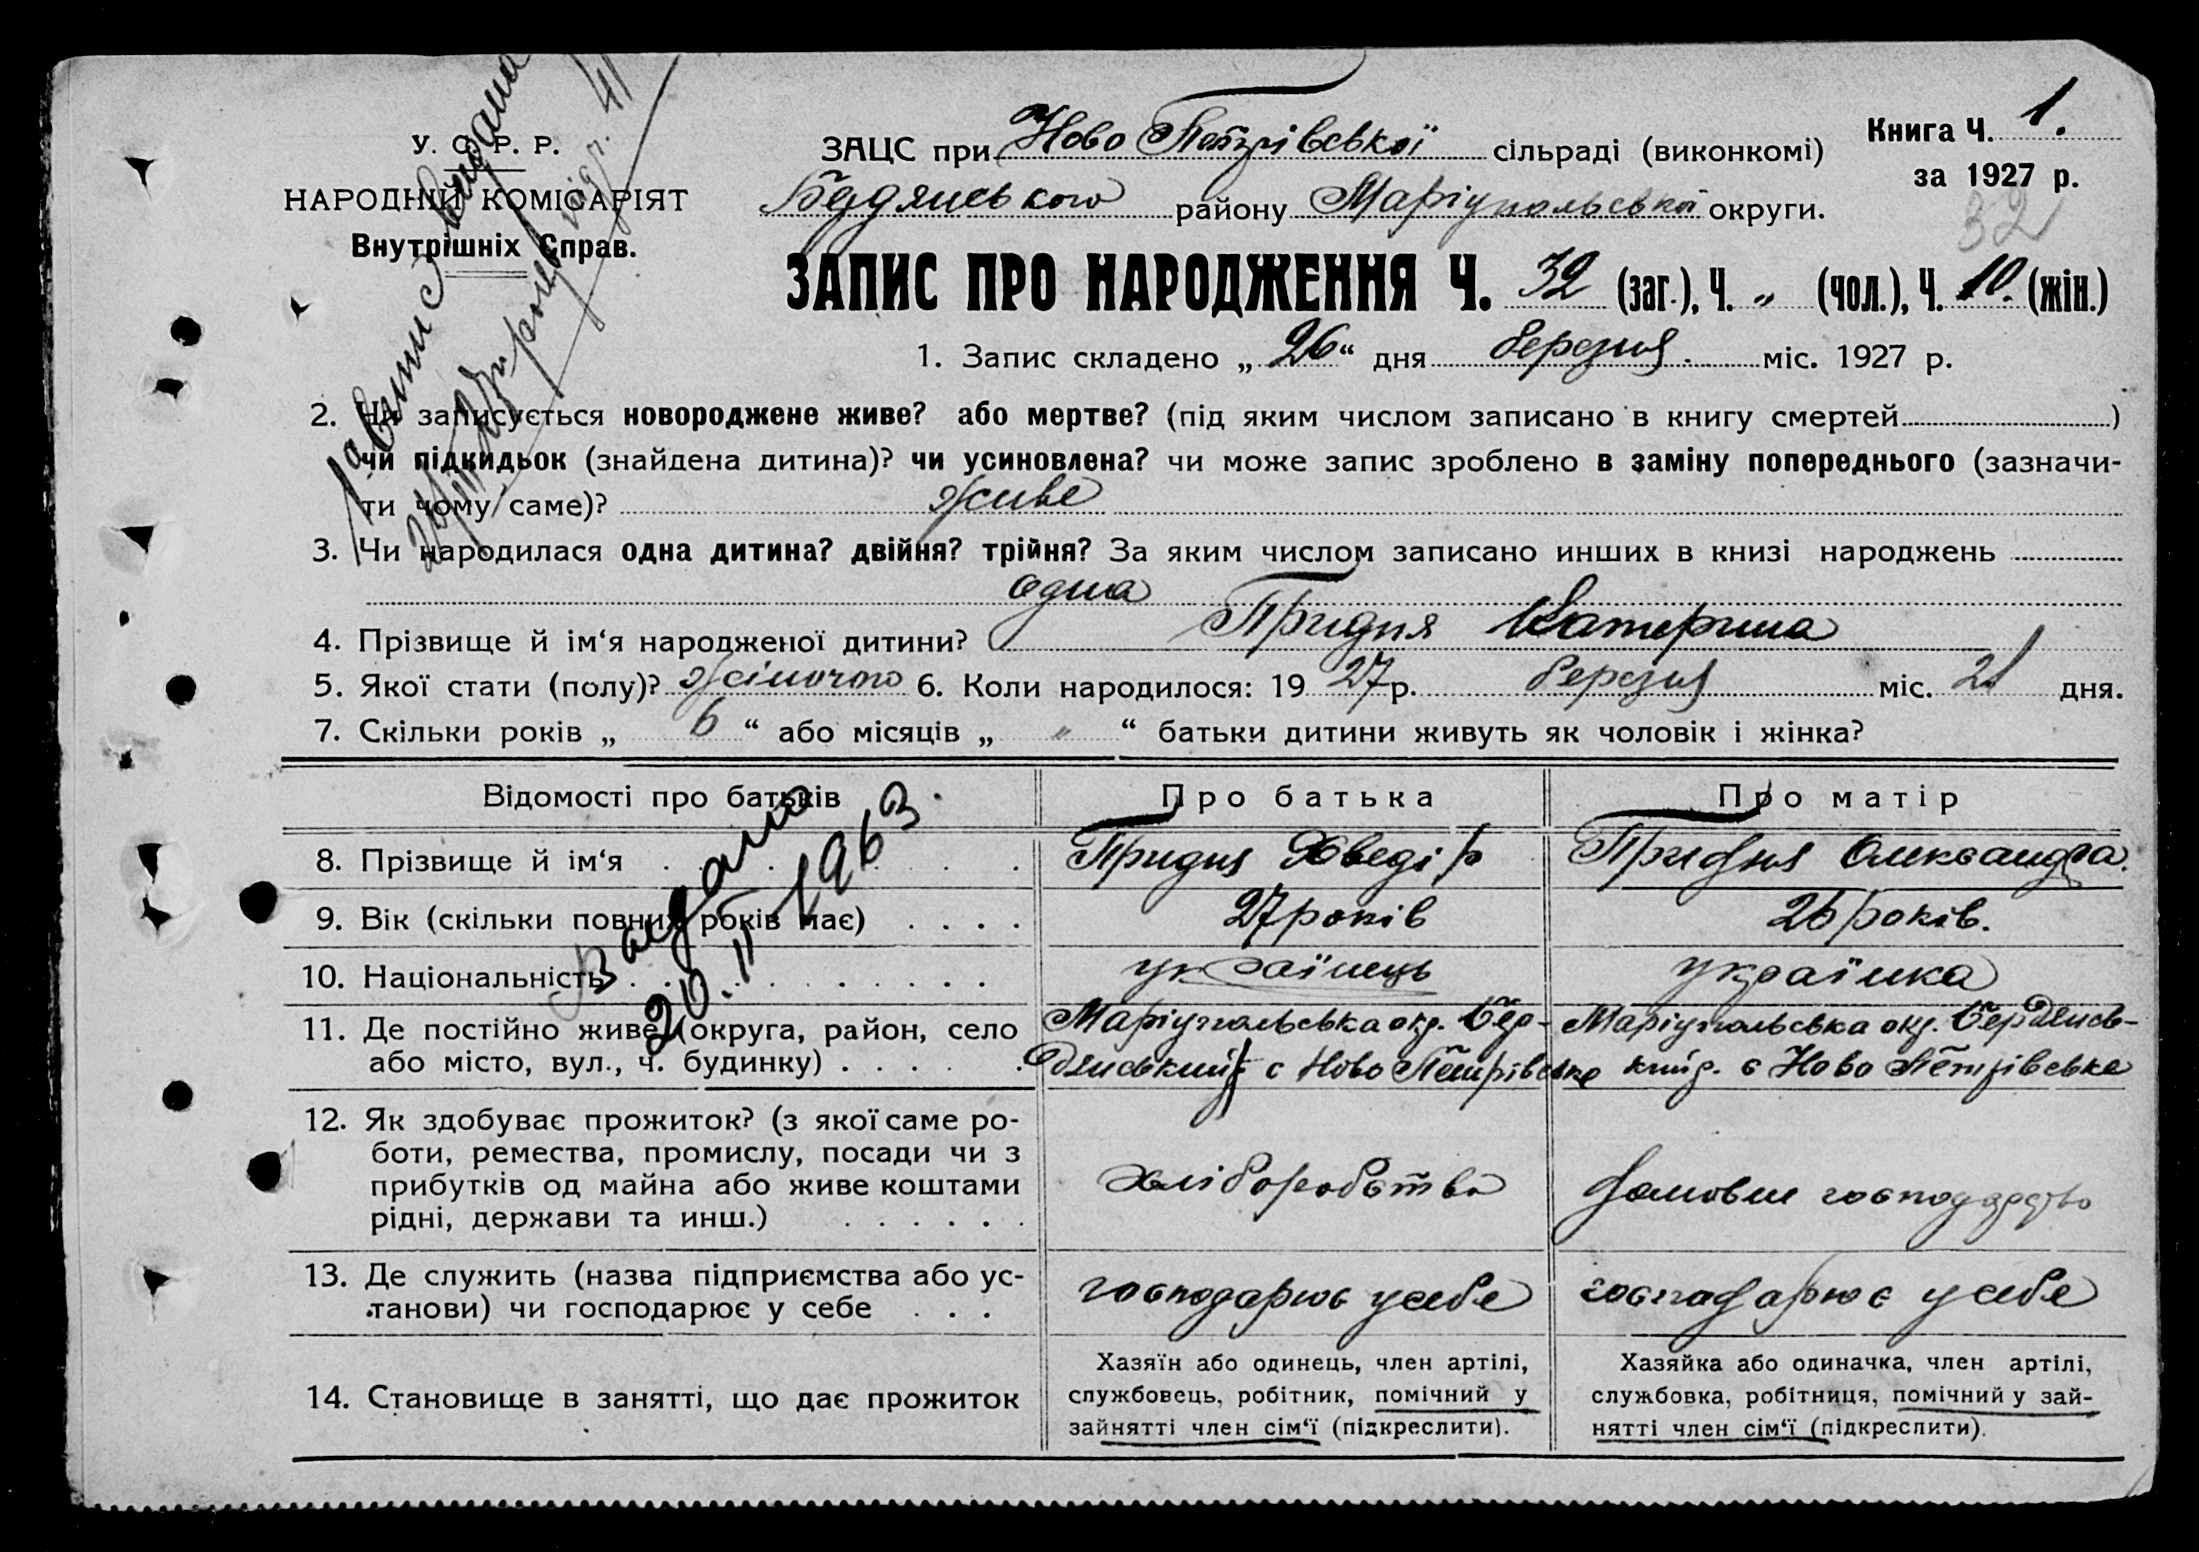 У. С. Р. Р.
НАРОДНІЙ КОМІСАРІЯТ
Внутрішніх Справ.
ЗАЦС при Ново Петрівської сільраді (виконкомі)
Бердянського району Маріупольської округи.
Книга Ч. 1.
за 1927 р.
32
ЗАПИС ПРО НАРОДЖЕННЯ Ч. 32 (заг.), Ч. „ (чол.), Ч. 10. (жін.)
1. Запис складено „ 26 “ дня березня міс. 1927 р.
2. Чи записується новороджене живе? або мертве? (під яким числом записано в книгу смертей )
чи підкидьок (знайдена дитина)? чи усиновлена? чи може запис зроблено в заміну попереднього (зазначи-
ти чому саме)? живе
3. Чи народилася одна дитина? двійня? трійня? За яким числом записано инших в книзі народжень
одна
4. Прізвище й ім‘я народженої дитини? Придня Катерина
5. Якої стати (полу)? жіночого 6. Коли народилося: 19 27 р. березня міс. 21 дня.
7. Скільки років „ 6 “ або місяців „ „ “ батьки дитини живуть як чоловік і жінка?
Відомості про батьків
Про батька
Про матір
8. Прізвище й ім‘я
Придня Хведір
Придня Олександра.
9. Вік (скільки повних років має)
27 років
26 років.
10. Національність
українець
українка
11. Де постійно живе (округа, район, село
або місто, вул., ч. будинку)
Маріупольська окр. Бер-
дянський р с Ново Петрівське
Маріупольська окр. Бердянсь-
кий р. с Ново Петрівське
12. Як здобуває прожиток? (з якої саме ро-
боти, ремества, промислу, посади чи з
прибутків од майна або живе коштами
рідні, держави та инш.)
хліборобство
домовне господарство
13. Де служить (назва підприємства або ус-
танови) чи господарює у себе
господарює у себе
господарює у себе
14. Становище в занятті, що дає прожиток
Хазяїн або одинець, член артілі,
службовець, робітник, помічний у
зайнятті член сім‘ї (підкреслити).
Хазяйка або одиначка, член артілі,
службовка, робітниця, помічний у зай-
нятті член сім‘ї (підкреслити).
Видано
20.II 1963